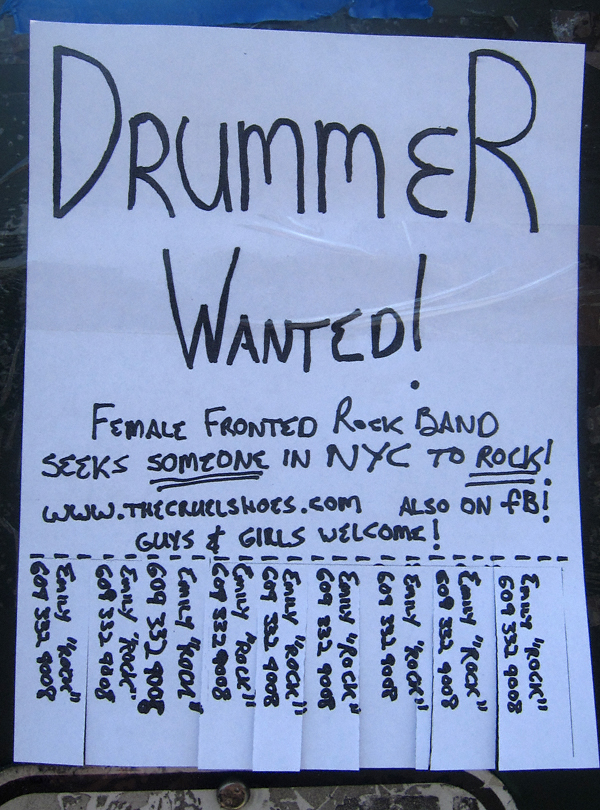 DRUMMER
WANTED!
FEMALE FRONTED ROCK BAND
SEEKS SOMEONE IN NYC TO ROCK!
WWW.THECRUELSHOES.COM ALSO ON FB!
GUYS & GIRLS WELCOME!
Emily "ROCK"
609 332 9008
Emily "ROCK"
609 332 9008
Emily "ROCK"
609 332 9008
Emily "ROCK"
609 332 9008
Emily "ROCK"
609 332 9008
Emily "ROCK"
609 332 9008
Emily "ROCK"
609 332 9008
Emily "ROCK"
609 332 9008
Emily "ROCK"
609 332 9008